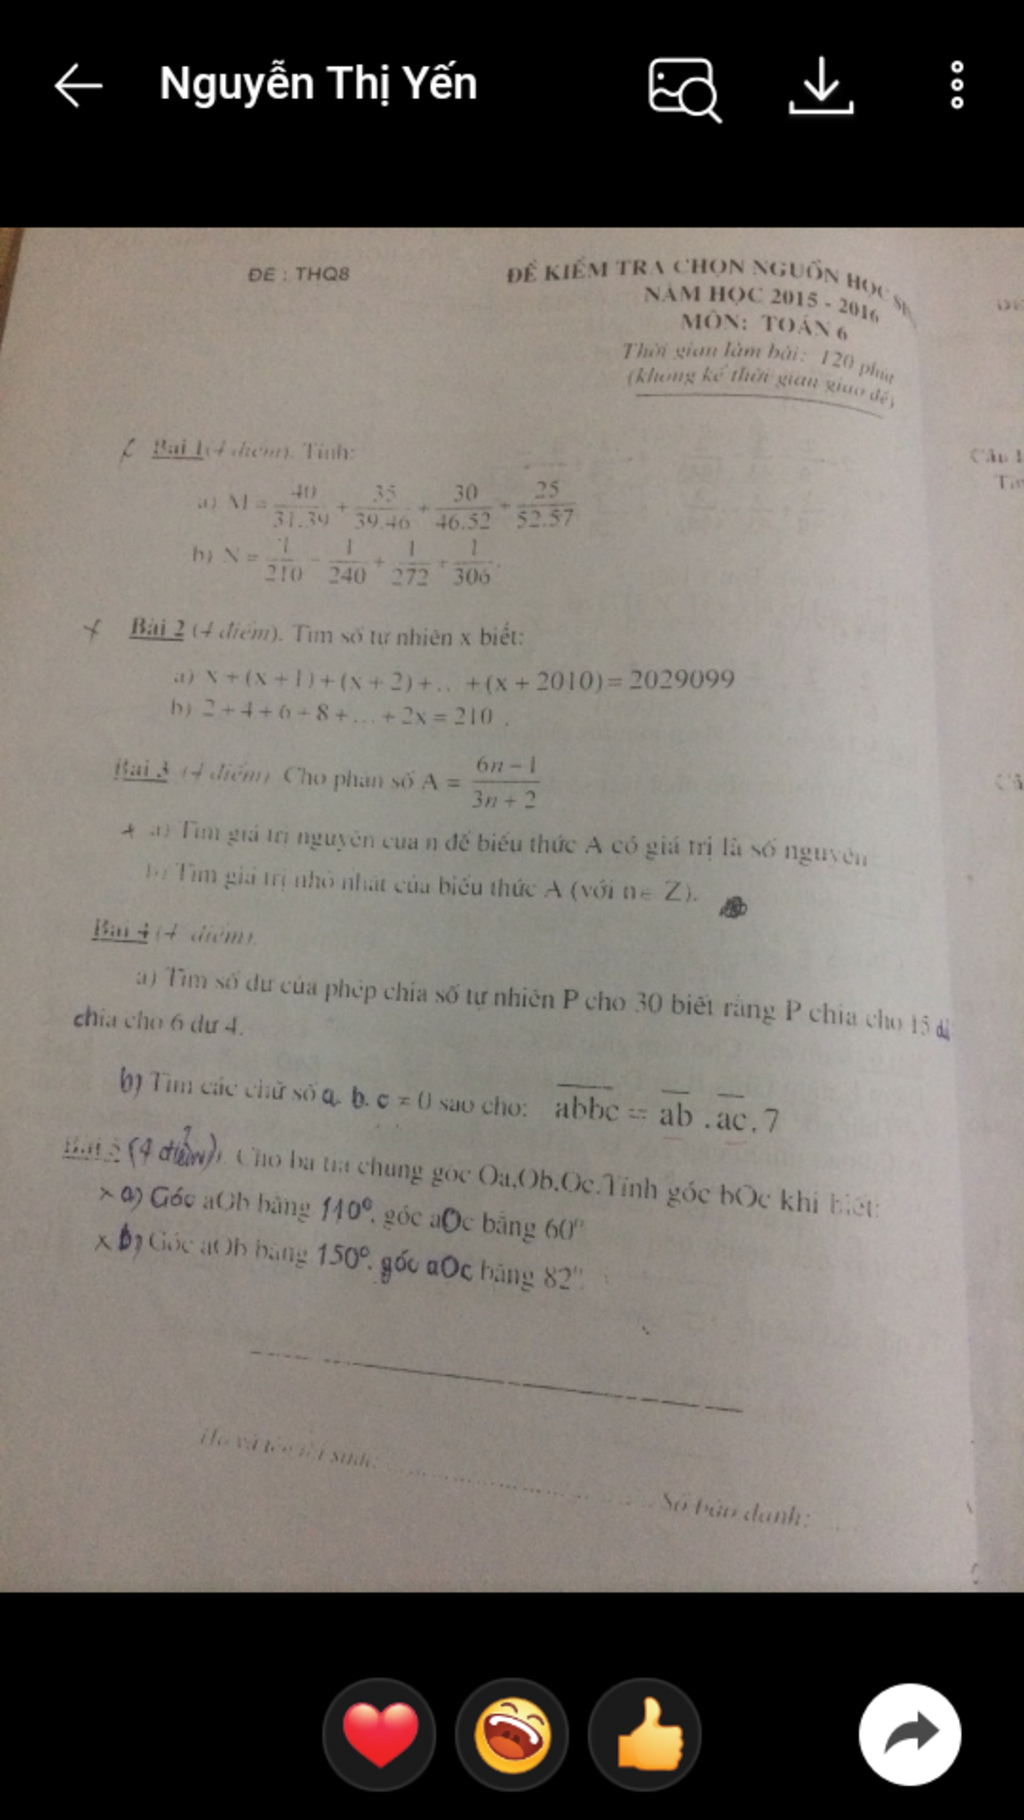 Nguyễn Thị Yến
ĐE : THQ8
ĐỀ KIỂM TRA CHỌN NGUỒN HỌC
NĂM HỌC 2015 - 2016
MÔN: TOÁN 6
Thời gian làm bài: 120 phút
(không kể thời gian giao đề)
Bài 1 (4 điểm). Tính:
a) M = 40/31.39 + 35/39.46 + 30/46.52 + 25/52.57
b) N = 1/210 + 1/240 + 1/272 + 1/306 .
Bài 2 (4 điểm). Tìm số tự nhiên x biết:
a) x + (x + 1) + (x + 2) + .. + (x + 2010) = 2029099
b) 2 + 4 + 6 + 8 + ... + 2x = 210 .
Bài 3 (4 điểm) Cho phân số A = 6n – 1/3n + 2
a) Tìm giá trị nguyên của n để biểu thức A có giá trị là số nguyên
b) Tìm giá trị nhỏ nhất của biểu thức A (với n ∈ Z).
Bài 4 (4 điểm)
a) Tìm số dư của phép chia số tự nhiên P cho 30 biết rằng P chia cho 15
chia cho 6 dư 4.
b) Tìm các chữ số a, b, c ≠ 0 sao cho: abbc = ab . ac . 7
Bài 5 (4 điểm). Cho ba tia chung gốc Oa,Ob,Oc.Tính góc bOc khi biết:
a) Góc aOb bằng 110°, góc aOc bằng 60°
b) Góc aOb bằng 150°, góc aOc bằng 82°.
Họ và tên thí sinh:
Số báo danh:
Câu 1